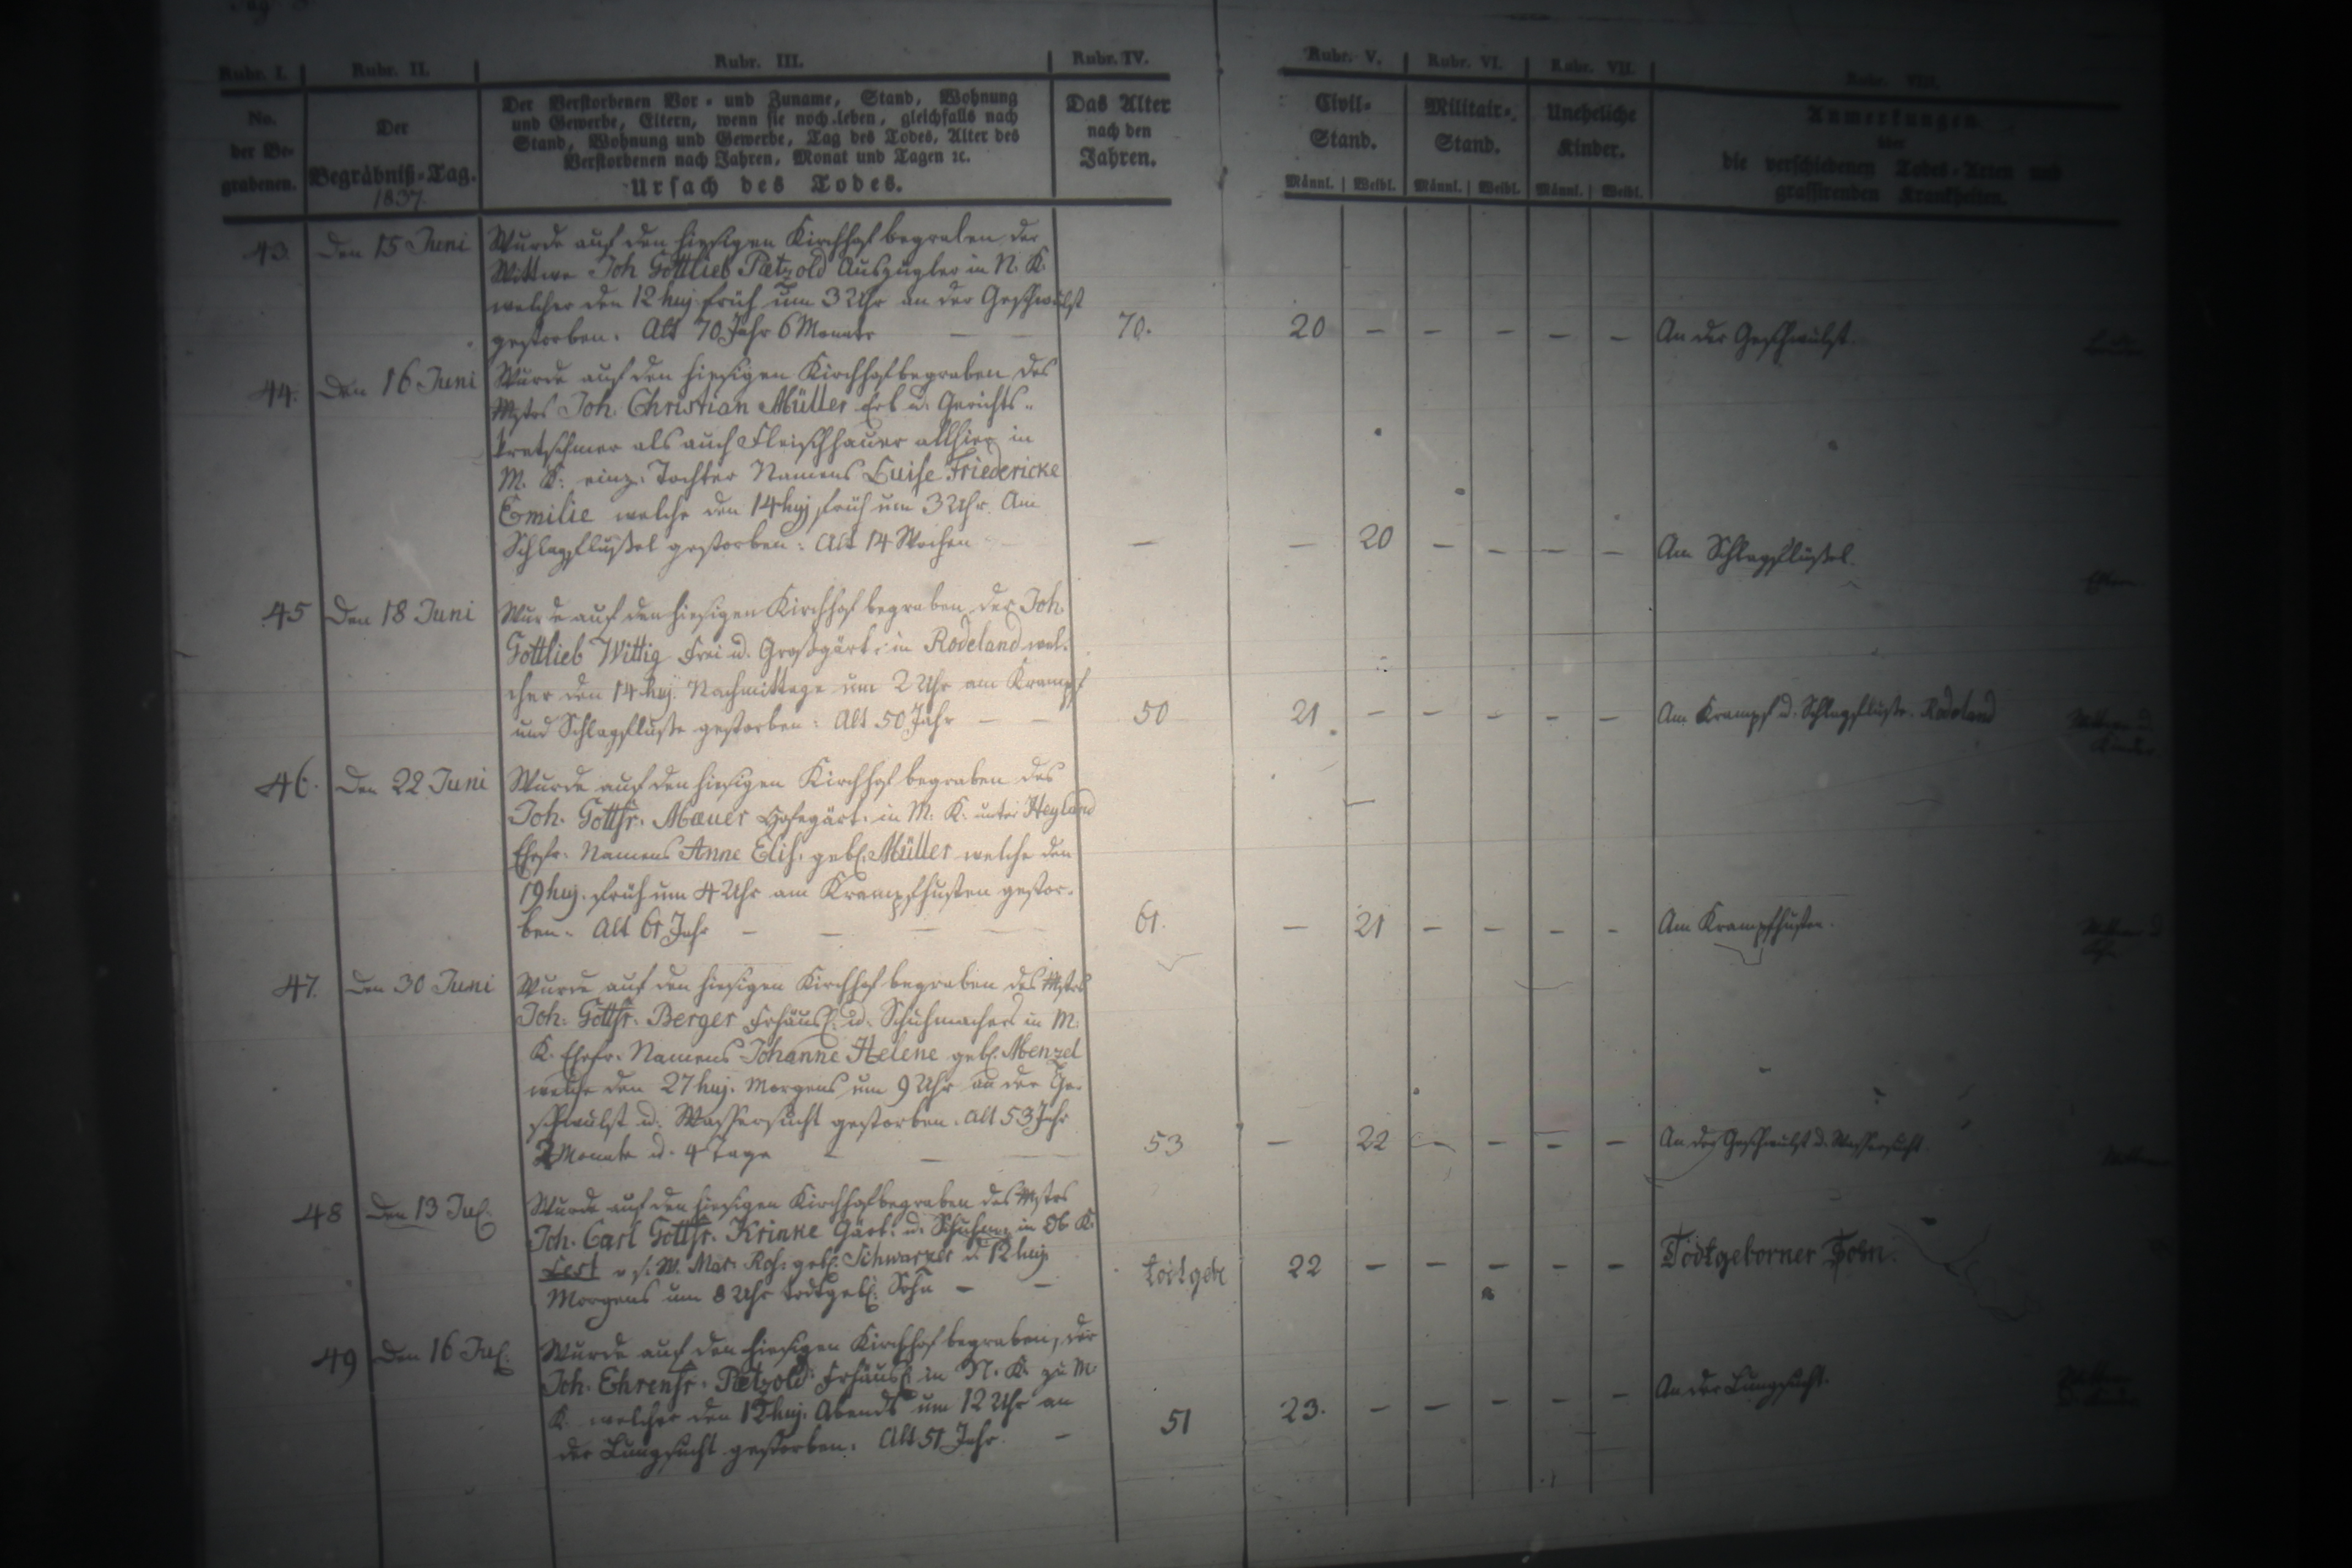 Rubr. I. Rubr. II. Rubr. III. Rubr. IV. Rubr. V. Rubr. VI. Rubr. VII. Rubr. VIII.
No. der Be- grabenen.
Der Begräbniß-Tag. 1837.
Der Verstorbenen Vor- und Zuname, Stand, Wohnung
und Gewerbe, Eltern, wenn sie noch leben, gleichfalls nach
Stand, Wohnung und Gewerbe, Tag des Todes, Alter des
Verstorbenen nach Jahren, Monat und Tagen ꝛc.
Ursach des Todes.
Das Alter
nach den
Jahren.
Civil-
Stand.
Männl. Weibl.
Militair-
Stand.
Männl. Weibl.
Uneheliche
Kinder.
Männl. Weibl.
Anmerkungen
über
die verschiedenen Todes-Arten und
grassirenden Krankheiten.
43. Den 15 Juni Wurde auf den hiesigen Kirchhof begraben der
Wittwer Joh Gottlieb Pætzold Auszügler in N. K.
welcher den 12 huj. früh um 3 Uhr an der Geschwulst
gestorben. Alt 70 Jahr 6 Monate — — 70. 20 — — — — — An der Geschwulst.
44. Den 16 Juni Wurde auf den hiesigen Kirchhof begraben des
Mstrs Joh. Christian Müller Erb u. Gerichts-
kretschmer als auch Fleischhauer allhier in
M. K. einz. Tochter Namens Luise Friedericke
Emilie welche den 14 huj früh um 3 Uhr. Am
Schlagflußel gestorben: Alt 14 Wochen — — 20 — — — — Am Schlagflußel.
45 Den 18 Juni Wurde auf den hiesigen Kirchhof begraben der Joh.
Gottlieb Wittig Frei u. Großgärt. in Rodeland wel-
cher den 14 huj. Nachmittage um 2 Uhr am Krampf
und Schlagfluße gestorben: Alt 50 Jahr — — 50 21 — — — — — Am Krampf u. Schlagfluße. Rodeland
46. Den 22 Juni Wurde auf den hiesigen Kirchhof begraben des
Joh. Gottfr. Mauer Hofegärt. in M. K. unter Heyland
Ehefr. Namens Anne Elis. geb. Müller welche den
19 huj. früh um 4 Uhr am Krampfhusten gestor-
ben. Alt 61 Jahr — — — — 61. — 21 — — — — Am Krampfhusten.
47. Den 30 Juni Wurde auf den hiesigen Kirchhof begraben des Mstrs
Joh. Gottfr. Berger Frhäusl. u. Schuhmachers in M.
K. Ehefr. Namens Johanne Helene geb. Menzel
welche den 27 huj. Morgens um 9 Uhr an der Ge-
schwulst u. Wassersucht gestorben. Alt 53 Jahr
2 Monate u. 4 Tage — — — 53 — 22 — — — — An der Geschwulst u. Wassersucht
48 Den 13 Jul. Wurde auf den hiesigen Kirchhof begraben des Mstrs
Joh. Carl Gottfr. Krinke Gärt. u. Schuhm. in Ob K.
geb. Schwarzer d. 12 huj.
Morgens um 8 Uhr todtgeb. Sohn — — todtgeb 22 — — — — — Todtgeborner Sohn.
49 Den 16 Jul. Wurde auf den hiesigen Kirchhof begraben, der
Joh. Ehrenfr. Pætzold Frhäusl. in N. K. zu M.
K. welcher den huj. Abends um 12 Uhr an
der Lungsucht gestorben. Alt 51 Jahr. — 51 23. — — — — — An der Lungsucht.